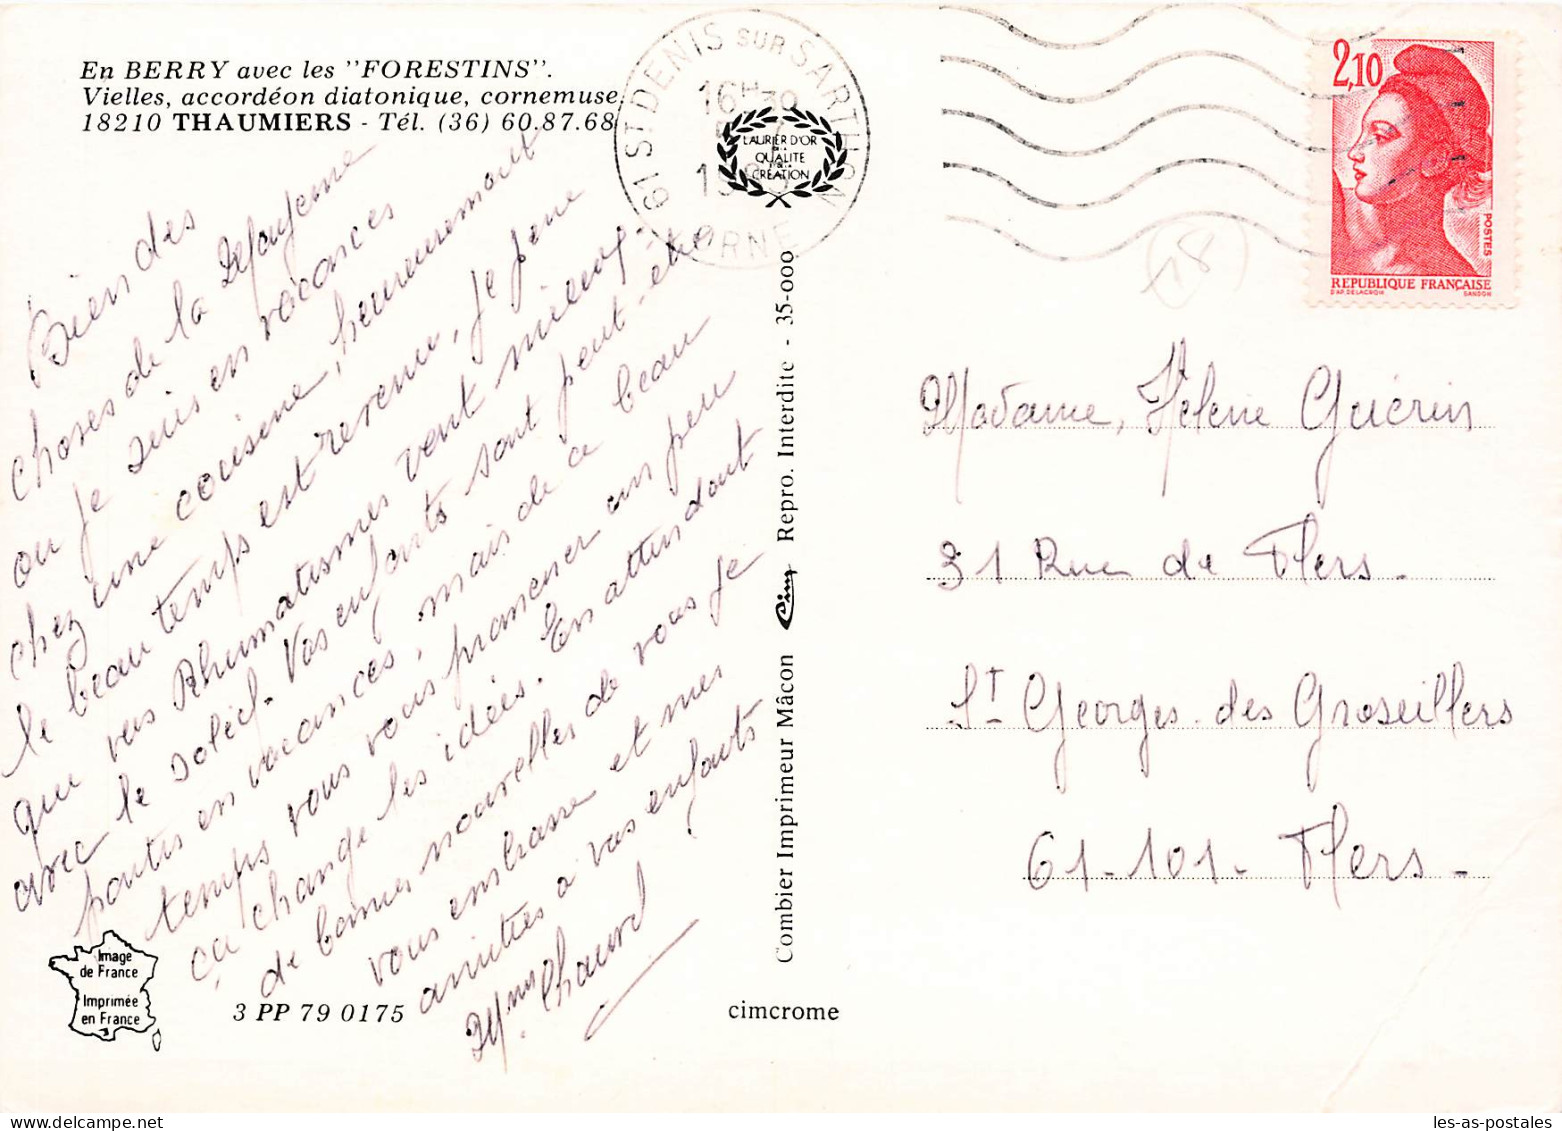 En BERRY avec les "FORESTINS".
Vielles, accordéon diatonique, cornemuse.
18210 THAUMIERS - Tél. (36) 60.87.68
Bien des
choses de la Mayenne
ou je suis en vacances
chez une cousine, heureusement
le beau temps est revenu, je pense
que vos Rhumatismes vont mieux
avec le soleil. Vos enfants sont peut-etre
partis en vacances, mais de ce beau
temps vous vous promener un peu
ça change les idées. En attendant
de bonnes nouvelles de vous je
vous embrasse et mes
amitiés a vos enfants
Mme Chauvel
Image
de France
Imprimée
en France
3 PP 79 0175
cimcrome
Combier Imprimeur Mâcon Cim Repro. Interdite - 35-000
61 ST DENIS SUR SARTHON
16H30
19
ORNE
LAURIER D'OR
DE LA
QUALITE
CREATION
2,10
POSTES
REPUBLIQUE FRANÇAISE
D'AP. DELACROIX GANDON
(18)
Madame, Hélène Guérin
31 Rue de Flers.
St Georges des Groseillers
61-101- Flers.
les-as-postales